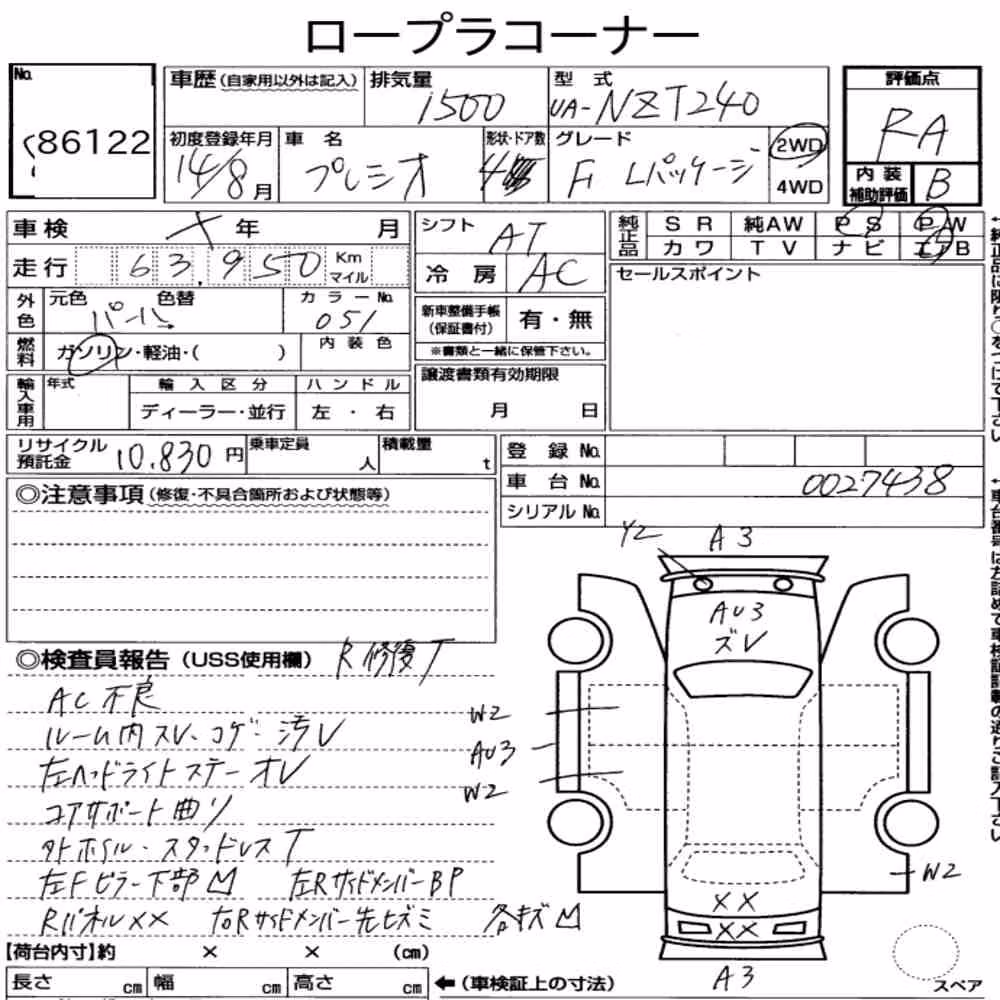 ロープラコーナー
No.
86122
車歴(自家用以外は記入)
排気量
1500
型式
UA-NZT240
評価点
RA
初度登録年月
14/8月
車名
プレミオ
形状・ドア数
4
グレード
F Lパッケージ
2WD
4WD
内装補助評価
B
車検
年 月
シフト
AT
純正品
SR 純AW PS PW
カワ TV ナビ エアB
走行
63,950
Km
マイル
冷房
AC
セールスポイント
外色
元色 色替
パール
カラーNo.
051
新車整備手帳(保証書付)
有・無
燃料
ガソリン・軽油・( )
内装色
※書類と一緒に保管下さい。
輸入車用
年式
輸入区分
ハンドル
譲渡書類有効期限
ディーラー・並行
左・右
月 日
リサイクル預託金
10,830円
乗車定員
人
積載量
t
登録No.
車台No.
0027438
シリアルNo.
◎注意事項(修復・不具合箇所および状態等)
Y2 A3
AU3
ズレ
◎検査員報告(USS使用欄)
R修復T
AC不良
ルーム内スレ・コゲ・汚レ
左ヘッドライトステーオレ
コアサポート曲リ
外ホイル・スタッドレスT
左Fピラー下部凹 左RサイドメンバーBP
RパネルXX 右Rサイドメンバー先ヒズミ 各キズ凹
W2
AU3
W2
W2
XX
XX
A3
スペア
【荷台内寸】約 × × (cm)
長さ cm 幅 cm 高さ cm
←(車検証上の寸法)